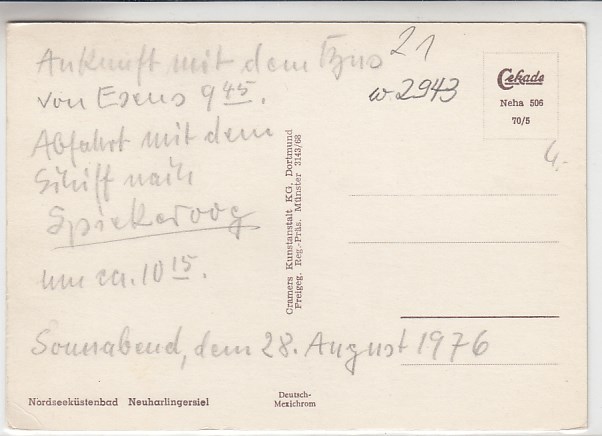 Ankunft mit dem
von Esens 9 45.
Abfahrt mit dem
Schiff nach
Spiekeroog
um ca. 10 15.
Sonnabend, dem 28. August 1976
21
w 2943
Cekade
Neha 506
70/5
4,-
Cramers Kunstanstalt KG, Dortmund
Freigeg. Reg.-Präs. Münster 3143/68
Nordseeküstenbad Neuharlingersiel
Deutsch-
Mexichrom